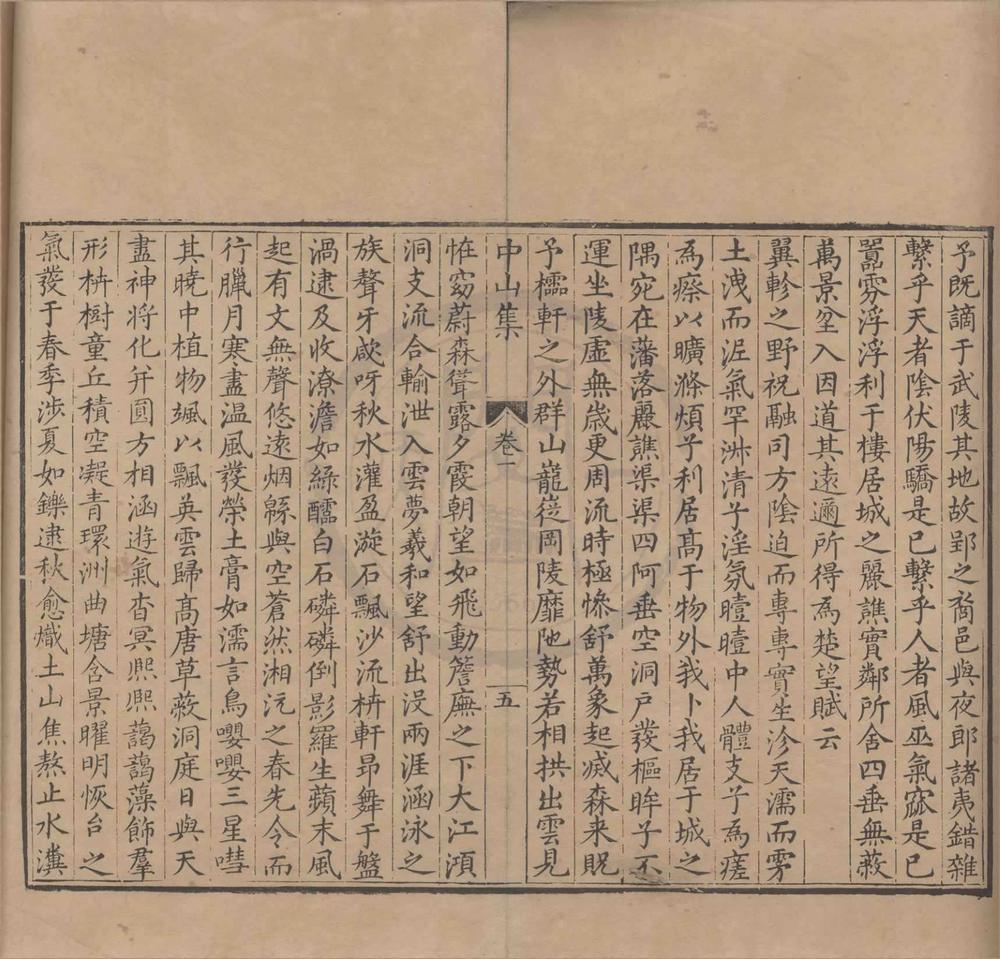 予既謫于武陵其地故郢之裔邑與夜郎諸夷錯雜
繫乎天者陰伏陽驕是已繫乎人者風巫氣窳是已
嚚雰浮浮利于樓居城之麗譙實鄰所舍四垂無蔽
萬景坌入因道其遠邇所得為楚望賦云
翼軫之野祝融司方陰迫而專專實生沴天濡而雺
土洩而泥氣罕淋清兮淫氛曀曀中人體支兮為瘥
為瘵以曠滌煩兮利居高于物外我卜我居于城之
隅宛在藩落麗譙渠渠四阿垂空洞戶發樞眸子不
運坐陵虛無歲更周流時極慘舒萬象起滅森來貺
予櫺軒之外群山巃嵸岡陵靡阤勢若相拱出雲見
中山集
卷一
五
恠窈蔚森聳露夕霞朝望如飛動簷廡之下大江澒
洞支流合輸泄入雲夢羲和望舒出沒兩涯涵泳之
族聲牙瞉呀秋水灌盈漩石飄沙流枿軒昂舞于盤
渦逮及收潦澹如綠醽白石磷磷倒影羅生蘋末風
起有文無聲悠遠烟緜與空蒼然湘沅之春先令而
行臘月寒盡溫風發榮土膏如濡言鳥嚶嚶三星嘒
其曉中植物颯以飄英雲歸高唐草蔽洞庭日與天
盡神將化并圓方相涵遊氣杳冥熙熙藹藹藻飾羣
形枿樹童丘積空凝青環洲曲塘含景曜明恢台之
氣發于春季涉夏如鑠逮秋愈熾土山焦熬止水瀵